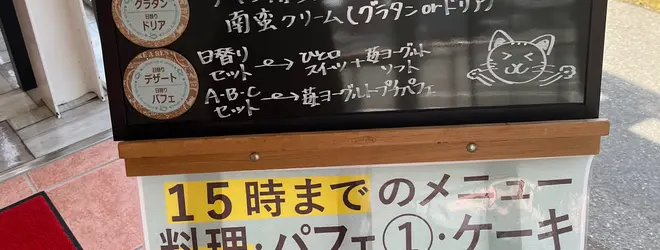 グラタン
日替り
ドリア
南蛮クリーム(グラタン or ドリア)
日替り
デザート
日替り
パフェ
日替りセット→ひと口スイーツ+苺ヨーグルトソフト
A・B・Cセット→苺ヨーグルトプチパフェ
15時までのメニュー
料理・パフェ①・ケーキ